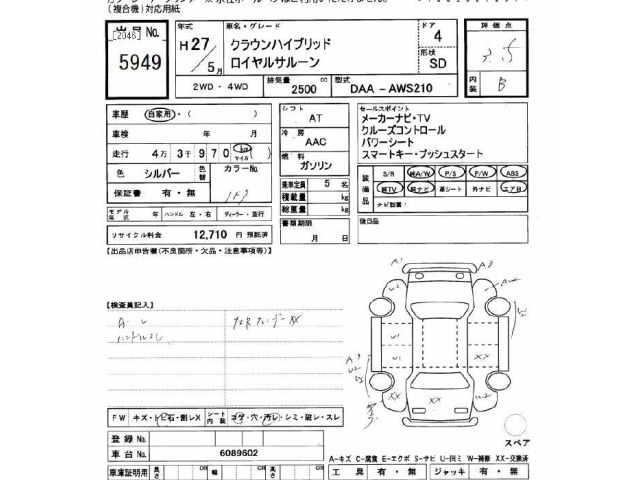 (複合機)対応用紙
出品 No.
[2046]
5949
年式
H27/5月
車名・グレード
クラウンハイブリッド
ロイヤルサルーン
ドア
4
形状
SD
評価点
内装
B
2WD・4WD
排気量
2500 cc
型式
DAA-AWS210
車歴 自家用・( )
車検 年 月
走行 4万3千970 (km マイル) ( )
色 シルバー
色替
カラーNo.
1F7
保証書 有・無
モデル年式 年 ハンドル 左・右 ディーラー・並行
リサイクル料金 12,710 円 預託済
シフト
AT
冷房
AAC
燃料
ガソリン
乗車定員 5 名
積載量 kg
総重量 kg
書類期限
月 日
セールスポイント
メーカーナビ・TV
クルーズコントロール
パワーシート
スマートキー・プッシュスタート
装備品
S/R 純A/W P/S P/W ABS
純TV 純ナビ 革シート 外ナビ エアB
ナビ割番:
後日品
【出品店申告欄(不良箇所・欠品・注意事項等)】
【検査員記入】
A1
A3
U2
U1
U1
XX
XX
U2
FW キズ・トビ石・割レX
シート内装 コゲ・穴・汚レ・シミ・破レ・スレ
登録 No.
車台 No. 6089602
スペア
A-キズ C-腐食 E-エクボ S-サビ U-凹ミ W-補修 XX-交換済
車庫証明用 長さ cm 幅 cm 高さ cm
工具 有・無 ジャッキ 有・無